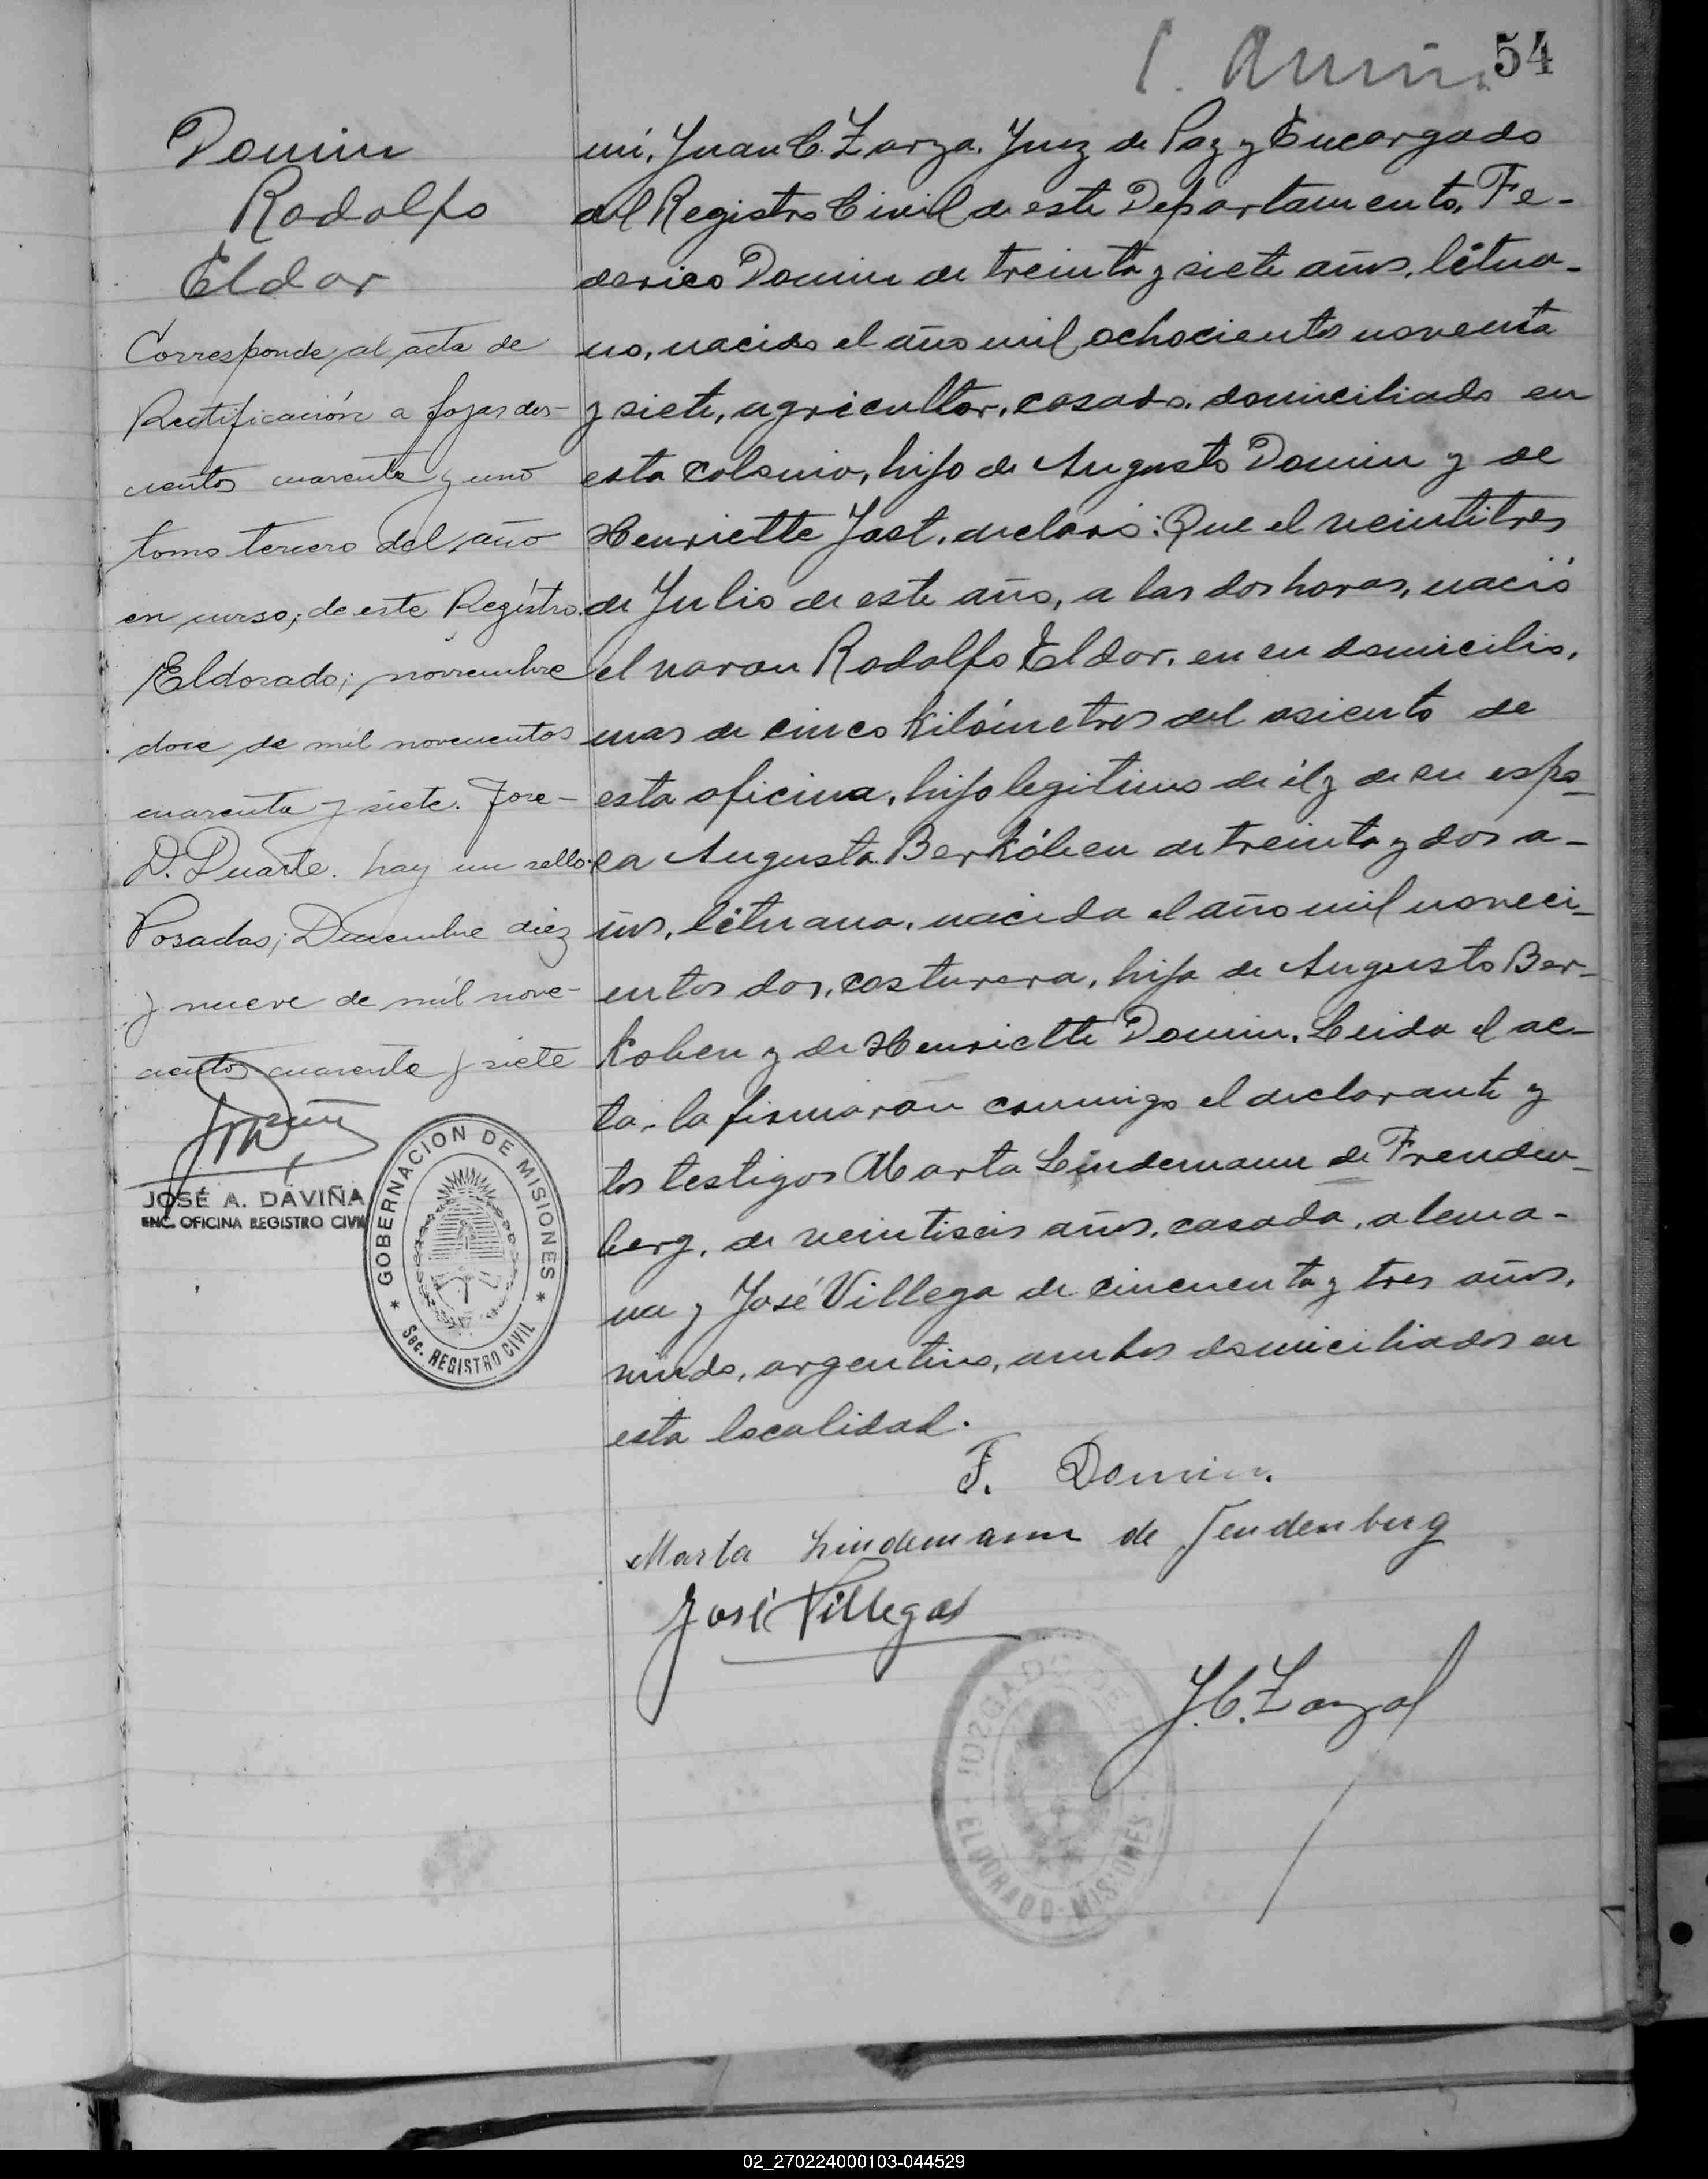 54
Domin
Rodolfo
Eldor
Corresponde, al acta de
Rectificación a fojas dos-
cientos cuarenta y uno
tomo tercero del año
en curso; de este Registro.
Eldorado; noviembre
doce de mil novecientos
cuarenta y siete. Jose-
D. Duarte. hay un sello.
Posadas; Diciembre diez
y nueve de mil nove-
cientos cuarenta y siete
JOSÉ A. DAVIÑA
ENC. OFICINA REGISTRO CIVIL
GOBERNACION DE MISIONES
Sec. REGISTRO CIVIL
mí, Juan C. Zarza, Juez de Paz y Encargado
del Registro Civil de este Departamento, Fe-
derico Domin de treinta y siete años, litua-
no, nacido el año mil ochociento noventa
y siete, agricultor, casado, domiciliado en
esta colonia, hijo de Augusto Domin y de
Henriette Jost, declaró: Que el veintitres
de Julio de este año, a las dos horas, nació
el varon Rodolfo Eldor, en su domicilio,
mas de cinco Kilómetros del asiento de
esta oficina, hijo legitimo de él y de su espo-
sa Augusta Berkóhen de treinta y dos a-
ños, lituana, nacida el año mil noveci-
entos dos, costurera, hija de Augusto Ber-
kohen y de Henriette Domin. Leida el ac-
ta, la firmaron conmigo el declarante y
los testigos Marta Lindemann de Freuden-
berg, de veintiseis años, casada, alema-
na y José Villega de cincuenta y tres años,
viudo, argentino, ambos domiciliados en
esta localidad.
F. Domin.
Marta Lindemann de Feudenberg
José Villegas
J. C. Zarza
JUZGADO DE PAZ
ELDORADO-MISIONES
02_270224000103-044529